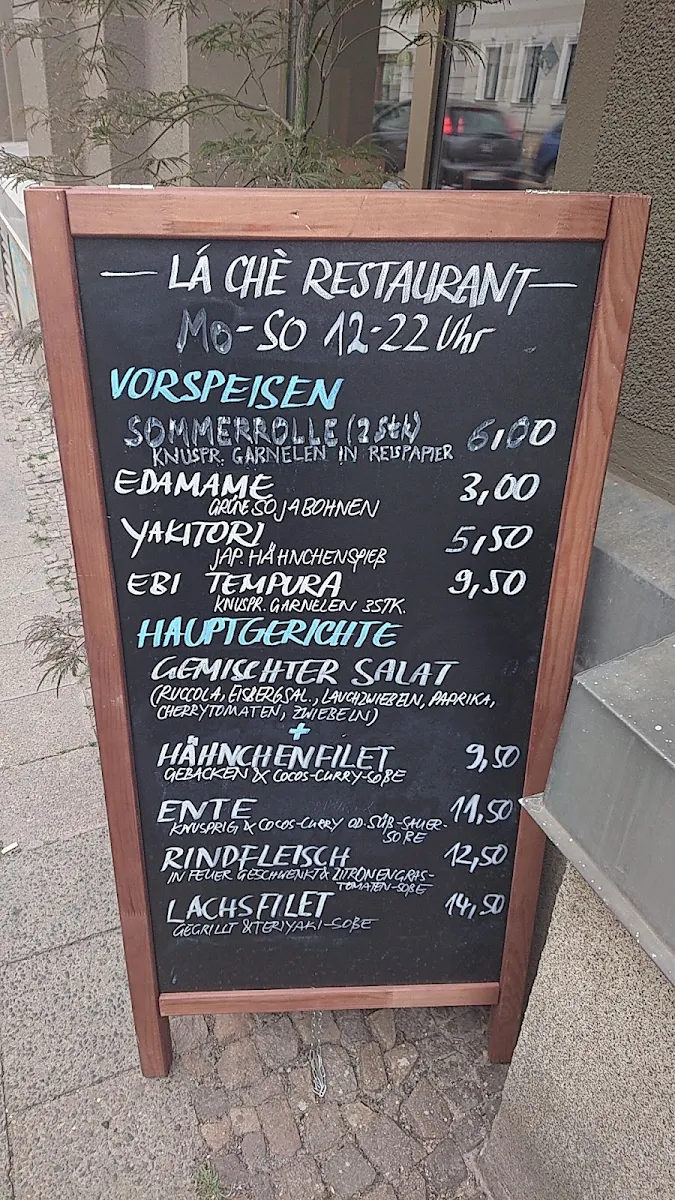 — LÁ CHÈ RESTAURANT —
MO-SO 12-22 Uhr
VORSPEISEN
SOMMERROLLE (2 Stk) 6,00
KNUSPR. GARNELEN IN REISPAPIER
EDAMAME 3,00
GRÜNE SOJABOHNEN
YAKITORI 5,50
JAP. HÄHNCHENSPIEß
EBI TEMPURA 9,50
KNUSPR. GARNELEN 3STK.
HAUPTGERICHTE
GEMISCHTER SALAT
(RUCCOLA, EISBERGSAL., LAUCHZWIEBELN, PAPRIKA,
CHERRYTOMATEN, ZWIEBELN)
+
HÄHNCHENFILET 9,50
GEBACKEN & COCOS-CURRY-SOßE
ENTE 11,50
KNUSPRIG & COCOS-CURRY OD. SÜß-SAUER-
SOßE
RINDFLEISCH 12,50
IN FEUER GESCHWENKT & ZITRONENGRAS-
TOMATEN-SOßE
LACHSFILET 14,50
GEGRILLT & TERIYAKI-SOßE